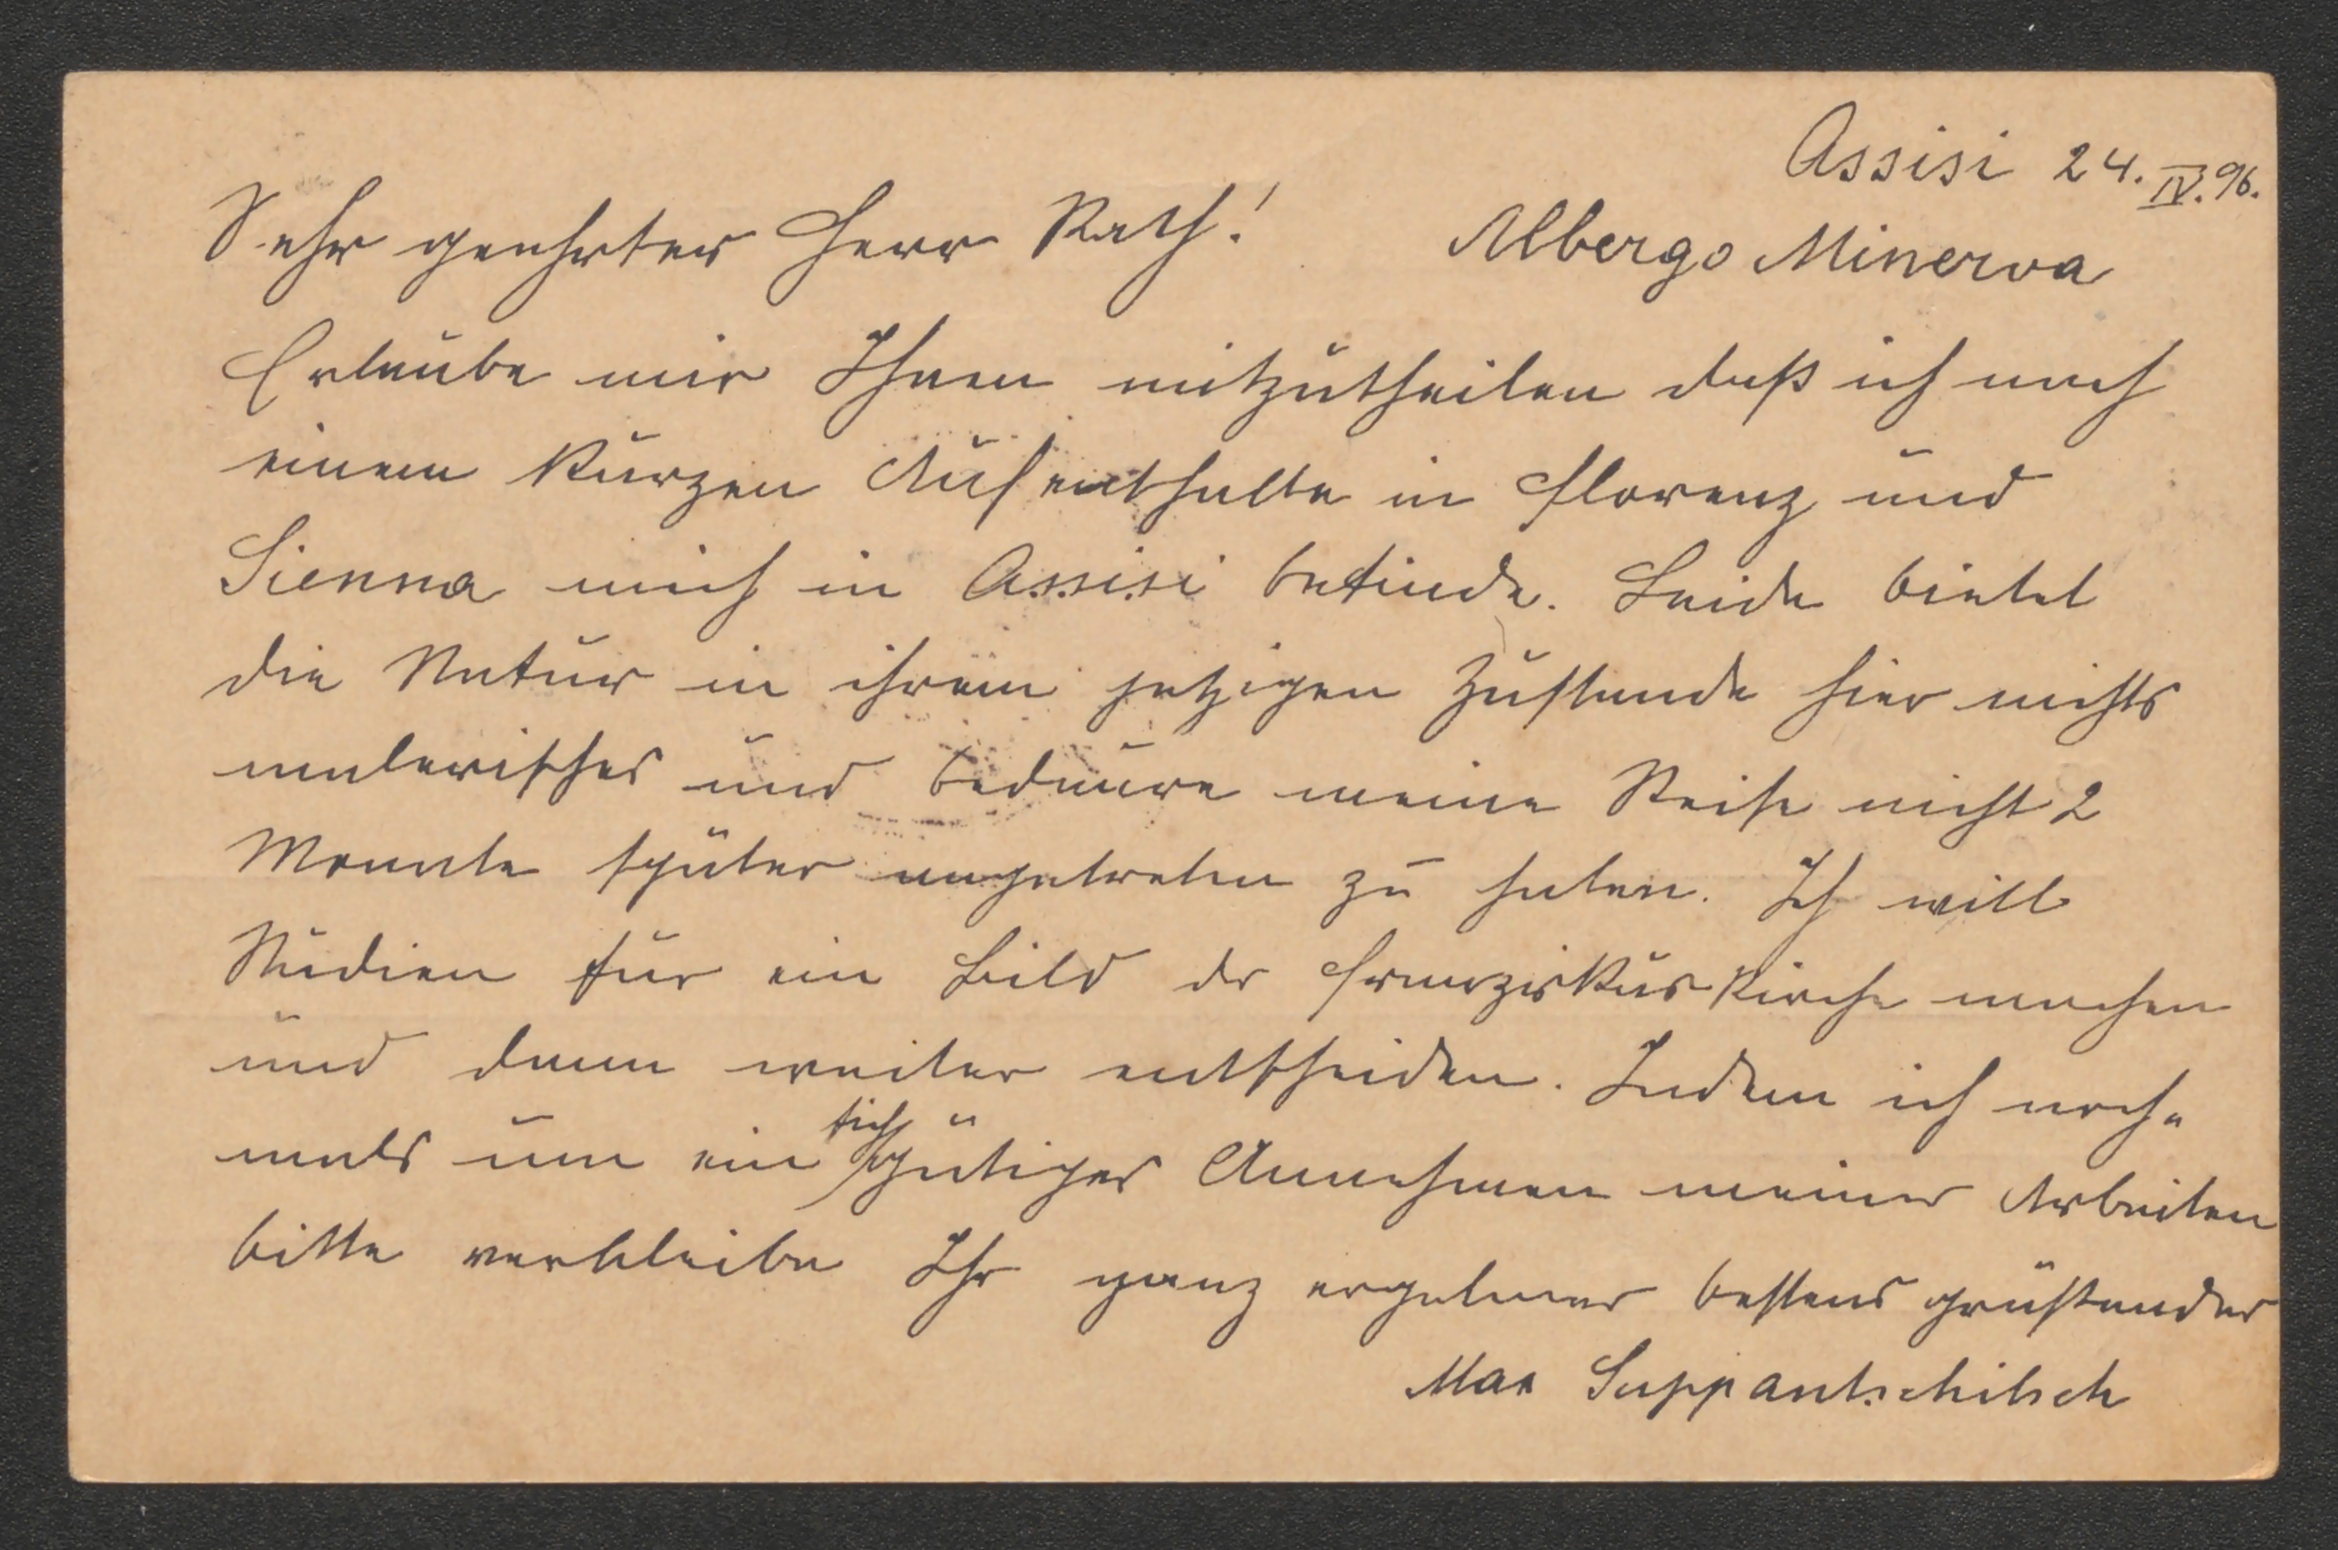 Assisi 24. IV. 96.
Sehr geehrter Herr Rath!
Albergo Minerva
Erlaube mir Ihnen mitzutheilen daß ich nach
einem kurzen Aufenthalte in Florenz und
Sienna mich in Assisi befinde. Leide bietet
die Natur in ihrem jetzigen Zustande hier nichts
malerisches und bedaure meine Reise nicht 2
Monate später angetreten zu haben. Ich will
Studien für ein Bild der Franziskuskirche machen
und dann weiter entscheiden. Indem ich noch-
mals um ein sich gütiges Annehmen meiner Arbeiten
bitte verbleibe Ihr ganz ergebener bestens grüßender
Max Suppantschitsch